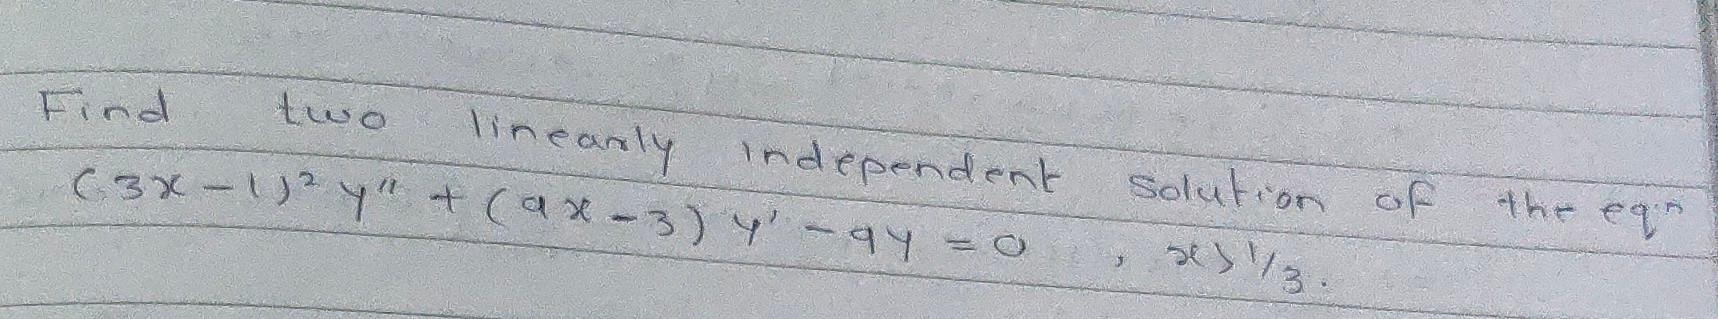 Find two linearly independent solution of the eqn
(3x-1)² y'' + (9x-3) y' - 9y = 0 , x > 1/3.